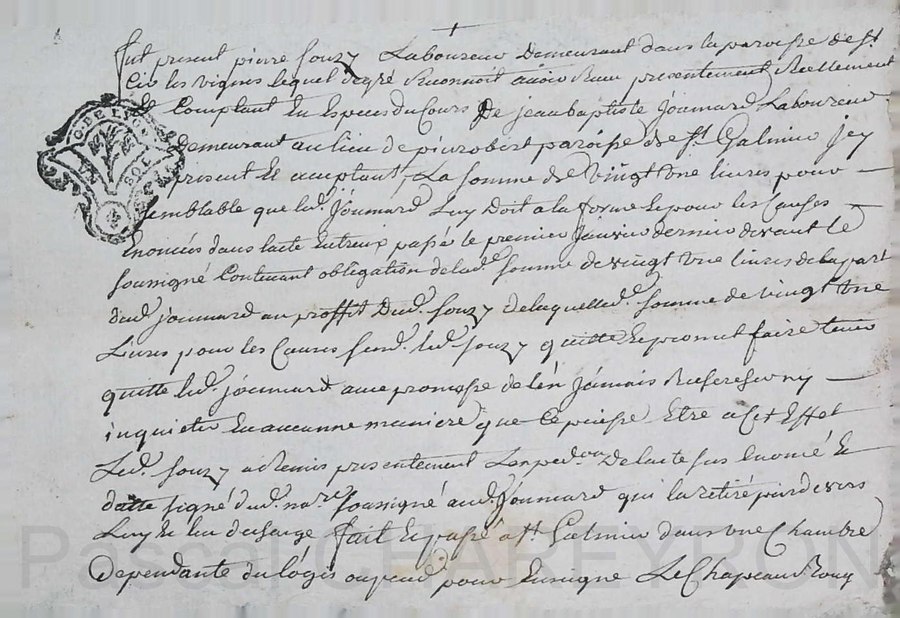 fut present pierre Souzy Laboureur demeurant dans la paroisse de St
Cir les vignes lequel de gré Reconnoit avoir Reçu presentement Reellement
Et Comptant En Especes du Cours De jean baptiste joûmard Laboureur
Demeurant au lieu de pierrobert paroisse de St Galmier jcy
present Et acceptant, La somme de vingt une livres pour
semblable que led. joûmard Luy Doit a la forme Et pour les Causes
Enoncées dans lacte Entreux passé le premier janvier dernier devant le
soussigné Contenant obligation de lad. somme de vingt une livres de la part
dud. joûmard au proffit Dud. Souzy de laquelle d. somme de vingt une
Livres pour les Causes led. Souzy quitte Et promet faire tenir
quitte led. joûmard avec promesse de len jamais Rechercher ny
inquieter En aucunne maniere que ce puisse Etre a Cet Effet
Led. Souzy a Remis presentement Lexped.on De lacte sus Enoncé Et
datté signé dud. no.re soussigné aud. joûmard qui la retiré pardevers
Luy Et len decharge fait Et passé a St Galmier dans une Chambre
Dependante du logis ou pend pour Enseigne Le Chapeau Rouge
G. DE LYON
SOL
Pascal CHAREYRON